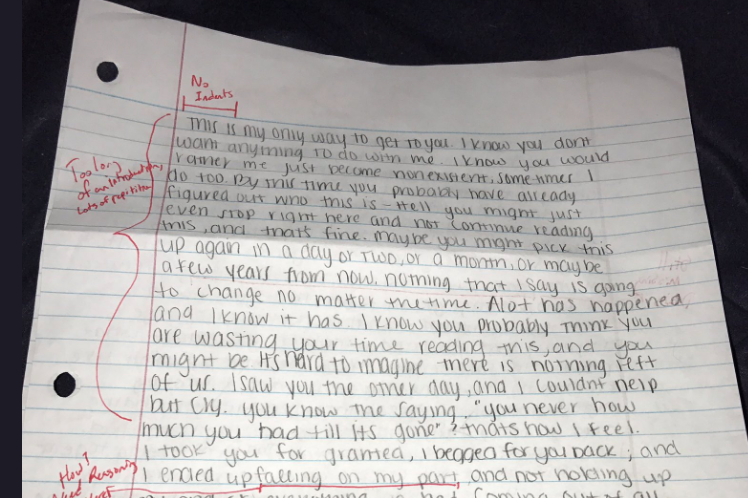 No
Indents
This is my only way to get to you I know you dont
want anything to do with me. I know you would
rather me just become nonexistent, sometimes I
do too. By this time you probably have already
figured out who this is - Hell you might just
even stop right here and not continue reading
this, and thats fine. maybe you might pick this
up again in a day or two, or a month, or maybe
a few years from now. nothing that I say is going
to change no matter the time. Alot has happened,
and I know it has. I know you probably think you
are wasting your time reading this, and you
might be. Its hard to imagine there is nothing left
of us. I saw you the other day, and I couldnt help
but cry. you know the saying, "you never how
much you had till its gone"? thats how I feel.
I took you for granted, I begged for you back, and
I ended up falling on my part, and not holding up
Too long
of an introduction,
Lots of repetition
How?
Need Reasoning